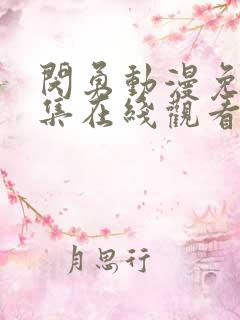 閃勇動漫免
集在綫觀看
月思行